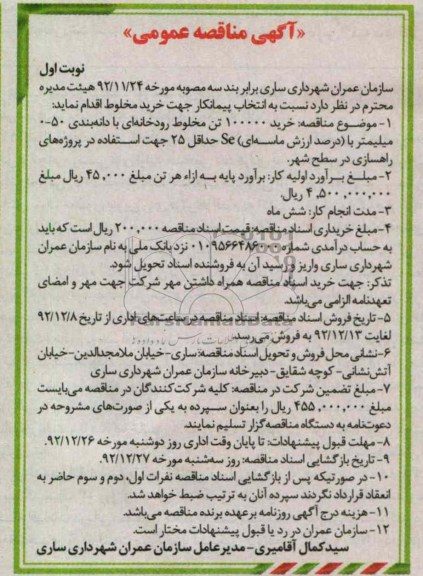 «آگهی مناقصه عمومی»
نوبت اول
سازمان عمران شهرداری ساری برابر بند سه مصوبه مورخه ۹۲/۱۱/۲۴ هیئت مدیره
محترم در نظر دارد نسبت به انتخاب پیمانکار جهت خرید مخلوط اقدام نماید:
۱- موضوع مناقصه: خرید ۱۰۰۰۰۰ تن مخلوط رودخانه‌ای با دانه‌بندی ۵۰-۰
میلیمتر با (درصد ارزش ماسه‌ای) Se حداقل ۲۵ جهت استفاده در پروژه‌های
راهسازی در سطح شهر.
۲- مبلغ برآورد اولیه کار: برآورد پایه به ازاء هر تن مبلغ ۴۵,۰۰۰ ریال مبلغ
۴,۵۰۰,۰۰۰,۰۰۰ ریال.
۳- مدت انجام کار: شش ماه
۴- مبلغ خریداری اسناد مناقصه: قیمت اسناد مناقصه ۲۰۰,۰۰۰ ریال است که باید
به حساب درآمدی شماره ۰۱۰۹۵۶۶۴۸۶۰۰۰ نزد بانک ملی به نام سازمان عمران
شهرداری ساری واریز و رسید آن به فروشنده اسناد تحویل شود.
تذکر: جهت خرید اسناد مناقصه همراه داشتن مهر شرکت جهت مهر و امضای
تعهدنامه الزامی می‌باشد.
۵- تاریخ فروش اسناد مناقصه: اسناد مناقصه در ساعت‌های اداری از تاریخ ۹۲/۱۲/۸
لغایت ۹۲/۱۲/۱۳ به فروش می‌رسد.
۶- نشانی محل فروش و تحویل اسناد مناقصه: ساری- خیابان ملامجدالدین- خیابان
آتش‌نشانی- کوچه شقایق- دبیرخانه سازمان عمران شهرداری ساری
۷- مبلغ تضمین شرکت در مناقصه: کلیه شرکت‌کنندگان در مناقصه می‌بایست
مبلغ ۴۵۵,۰۰۰,۰۰۰ ریال را بعنوان سپرده به یکی از صورت‌های مشروحه در
دعوت‌نامه به دستگاه مناقصه‌گزار تسلیم نمایند.
۸- مهلت قبول پیشنهادات: تا پایان وقت اداری روز دوشنبه مورخه ۹۲/۱۲/۲۶.
۹- تاریخ بازگشایی اسناد مناقصه: روز سه‌شنبه مورخه ۹۲/۱۲/۲۷.
۱۰- در صورتیکه پس از بازگشایی اسناد مناقصه نفرات اول، دوم و سوم حاضر به
انعقاد قرارداد نگردند سپرده آنان به ترتیب ضبط خواهد شد.
۱۱- هزینه درج آگهی روزنامه برعهده برنده مناقصه می‌باشد.
۱۲- سازمان عمران در رد یا قبول پیشنهادات مختار است.
سیدکمال آقامیری- مدیرعامل سازمان عمران شهرداری ساری